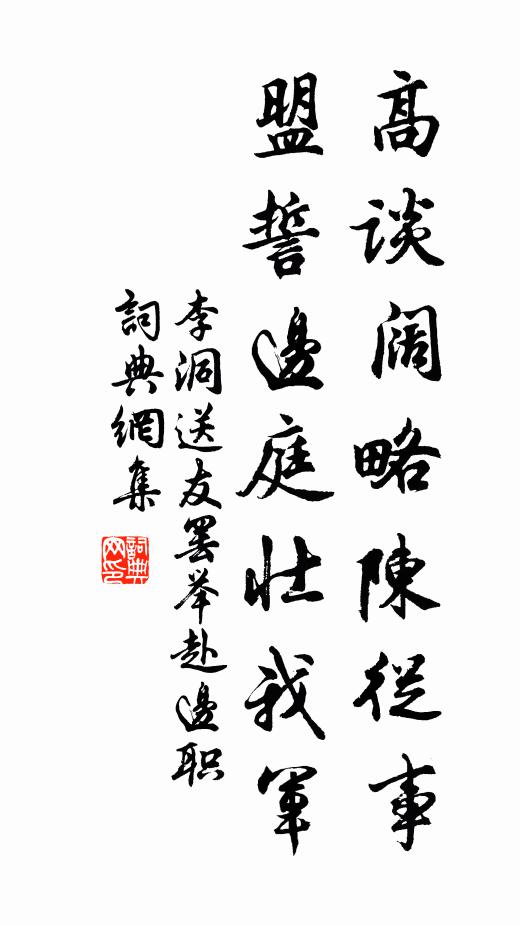 高谈阔略陳從事
盟誓邊庭壮我軍
李洞送友罢举赴邊职
詞典網集
詞典网印